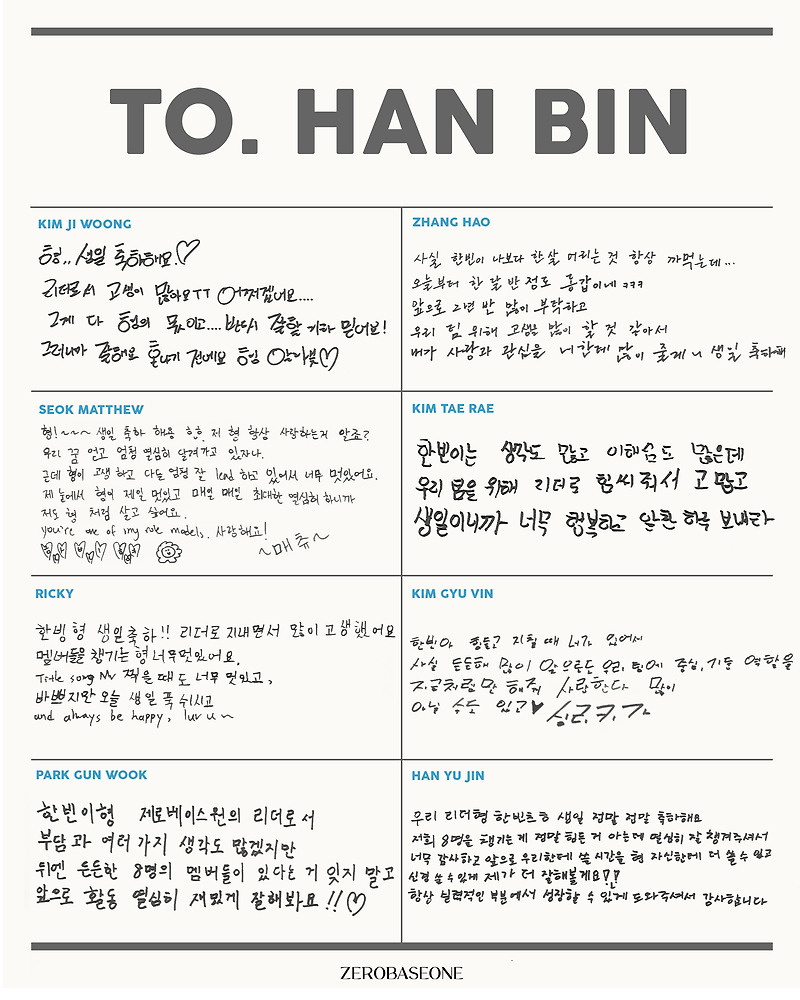 TO. HAN BIN
KIM JI WOONG
형.. 생일 축하해요.♡
리더로서 고생이 많아요ㅜㅜ 어쩌겠어요....
그게 다 형의 몫이고.... 반드시 잘할 거라 믿어요!
그러니까 잘해요 혼나기 전에요 형
ZHANG HAO
사실 한빈이 나보다 한 살 어리는 것 항상 까먹는데...
오늘부터 한 달 반 정도 동갑이네 ㅋㅋㅋ
앞으로 2년 반 많이 부탁하고
우리 팀 위해 고생은 많이 할 것 같아서
내가 사랑과 관심을 너한테 많이 줄게니 생일 축하해
SEOK MATTHEW
형!~~~ 생일 축하 해용 제 형 항상 사랑하는거 알죠?
우리 꿈 얻고 엄청 열심히 달려가고 있자나.
근데 형이 고생하고 다들 엄청 잘 lead 하고 있어서 너무 멋있어요.
제 눈에서 형이 제일 멋있고 매일 매일 최대한 열심히 하니까
저도 형 처럼 살고 싶어요.
you're one of my role models. 사랑해요!
~매튜~
KIM TAE RAE
한빈이는 생각도 많고 이해심도 많은데
우리 봄을 위해 리더로 힘써줘서 고맙고
생일이니까 너무 행복하고 알찬 하루 보내라
RICKY
한빙 형 생일축하!! 리더로 지내면서 많이 고생했어요
멤버들을 챙기는 형 너무 멋있어요.
Title song MV 찍을 때도 너무 멋있고,
바쁘지만 오늘 생일 푹 쉬시고
and always be happy, luv u ~
KIM GYU VIN
한빈아 힘들고 지칠 때 너가 있어서
사실 든든해 많이 앞으로도 우리 팀에 중심, 기둥 역할을
지금처럼만 해줘 사랑한다 많이
아닐 수도 있고♥
PARK GUN WOOK
한빈이형 제로베이스원의 리더로서
부담과 여러가지 생각도 많겠지만
뒤엔 든든한 8명의 멤버들이 있다는 거 잊지 말고
앞으로 활동 열심히 재밌게 잘해봐요!!♡
HAN YU JIN
우리 리더형 한빈츄ㅎ 생일 정말 정말 축하해요
저희 8명을 챙기는게 정말 힘든 거 아는데 열심히 잘 챙겨주셔서
너무 감사하고 앞으로 우리한테 쓸 시간을 형 자신한테 더 쓸 수 있고
신경 쓸 수 있게 제가 더 잘해볼게요!!
항상 실력적인 부분에서 성장할 수 있게 도와주셔서 감사합니다
ZEROBASEONE